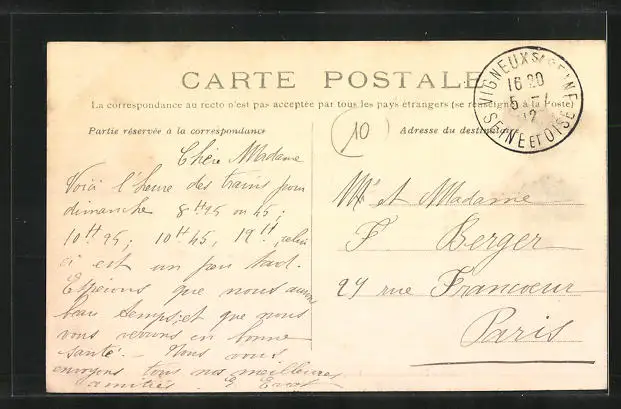 CARTE POSTALE
La correspondance au recto n'est pas acceptée par tous les pays étrangers (se renseigner à la Poste)
Partie réservée à la correspondance
Adresse du destinataire
10
VIGNEUX S/ SEINE
16 20
5 - 1
12
SEINE ET OISE
Chère Madame
Voici l'heure des trains pour
dimanche 8H25 ou 45;
10H25; 10H45, 12H,
ci est un peu tard.
Espérons que nous aurons
beau temps, et que nous
vous verrons en bonne
santé. - Nous vous
envoyons tous nos meilleures
amitiés. E.
Mr et Madame
F Berger
29 rue Francoeur
Paris